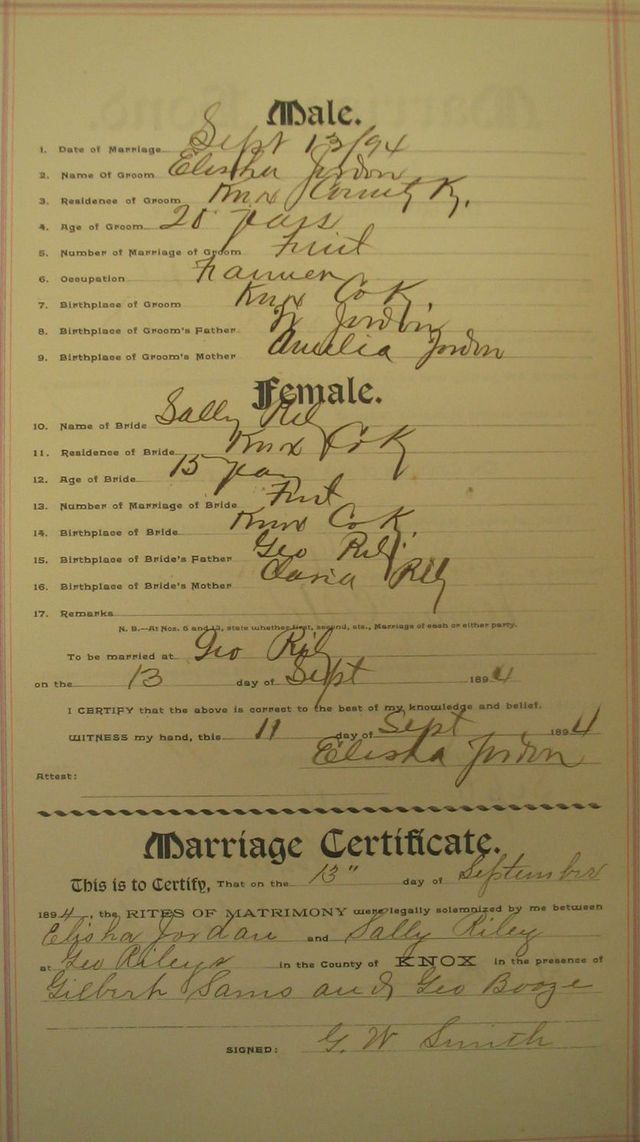 Male.
1. Date of Marriage Sept 13/94
2. Name Of Groom Elisha Jordon
3. Residence of Groom Knox County Ky.
4. Age of Groom 20 years
5. Number of Marriage of Groom First
6. Occupation Farmer
7. Birthplace of Groom Knox Co K.
8. Birthplace of Groom's Father Jordon
9. Birthplace of Groom's Mother Amelia Jordon
Female.
10. Name of Bride Sally Rily
11. Residence of Bride Knox Co K
12. Age of Bride 15
13. Number of Marriage of Bride First
14. Birthplace of Bride Knox Co K.
15. Birthplace of Bride's Father Geo Rily
16. Birthplace of Bride's Mother Rily
17. Remarks
N. B.—At Nos. 5 and 13, state whether first, second, etc., Marriage of each or either party.
To be married at Geo Rily
on the 13 day of Sept 1894
I CERTIFY that the above is correct to the best of my knowledge and belief.
WITNESS my hand, this 11 day of Sept 1894
Elisha Jordon
Attest:
Marriage Certificate.
This is to Certify, That on the 13" day of September
1894, the RITES OF MATRIMONY were legally solemnized by me between
Elisha Jordan and Sally Riley
at Geo Rileys in the County of KNOX in the presence of
Gilbert Sams and Geo Booze
SIGNED: G. W Smith